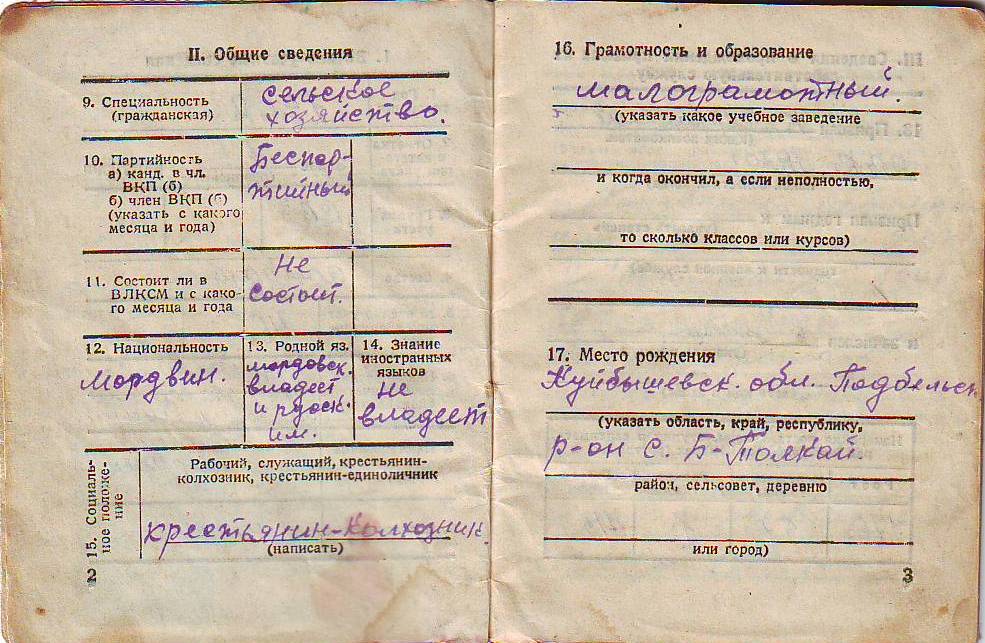 II. Общие сведения
9. Специальность
(гражданская)
сельское
хозяйство.
10. Партийность
а) канд. в чл.
ВКП (б)
б) член ВКП (б)
(указать с какого
месяца и года)
Беспар-
тийный
11. Состоит ли в
ВЛКСМ и с како-
го месяца и года
Не
состоит.
12. Национальность
мордвин.
13. Родной яз.
мордовск.
владеет
и русск-
им.
14. Знание
иностранных
языков
не
владеет
15. Социаль-
ное положе-
ние
Рабочий, служащий, крестьянин-
колхозник, крестьянин-единоличник
крестьянин-колхозник
(написать)
2
16. Грамотность и образование
малограмотный.
(указать какое учебное заведение
и когда окончил, а если неполностью,
то сколько классов или курсов)
17. Место рождения
Куйбышевск. обл. Подбельск
(указать область, край, республику,
р-он с. Б-Толкай.
район, сельсовет, деревню
или город)
3